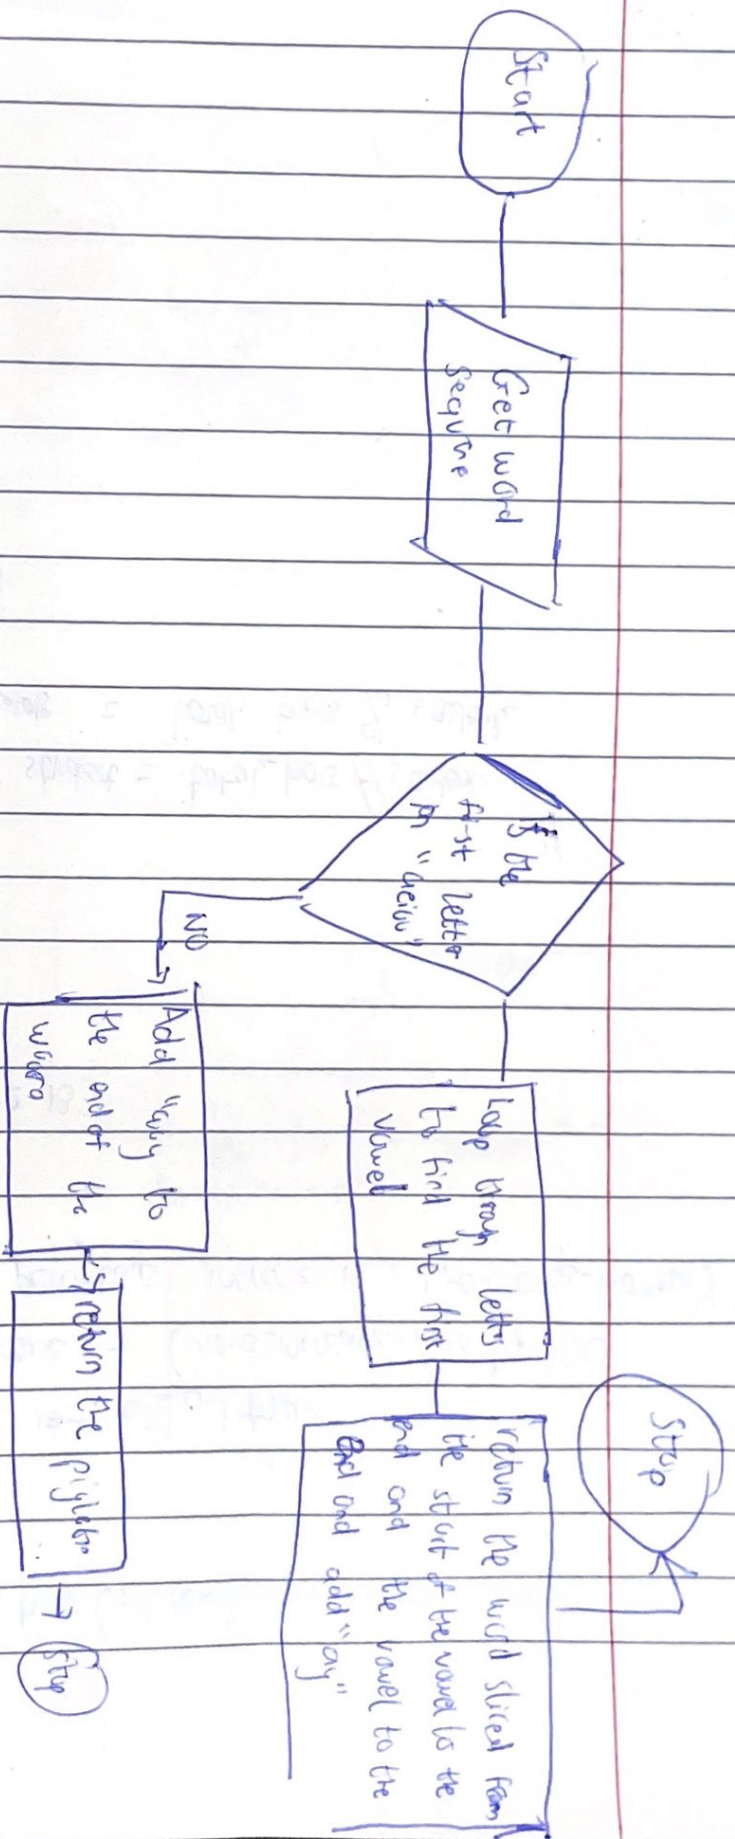 Start
Get word
sequne
Is the
first letter
in "aeiou"
NO
Add "way to
the end of the
word
return the piglatin
Stop
Loop throgh letters
to find the first
vowel
return the word sliced from
the start of the vowel to the
end and the vowel to the
end and add "ay"
Stop